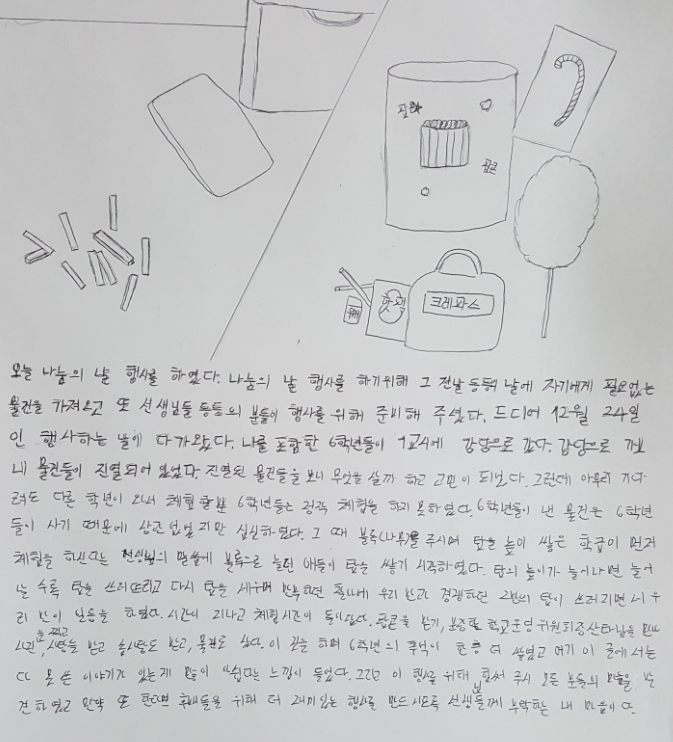 팝콘
팝콘
핫팩
크레파스
오늘 나눔의 날 행사를 하였다. 나눔의 날 행사를 하기위해 그 전날 등등의 날에 자기에게 필요없는
물건을 가져오고 또 선생님들 등등의 분들이 행사를 위해 준비해 주셨다. 드디어 12월 24일
인 행사하는 날이 다가왔다. 나를 포함한 6학년들이 1교시에 강당으로 갔다. 강당으로 가보
니 물건들이 진열되어 있었다. 진열된 물건들을 보니 무엇을 살까 하고 고민이 되었다. 그런데 아무리 기다
려도 다른 학년이 와서 체험할뿐 6학년들은 정작 체험을 하지 못하였다. 6학년들이 낸 물건은 6학년
들이 사기 때문에 상관 없었지만 심심하였다. 그 때 블록(나무)를 주시며 탑을 높이 쌓은 학급이 먼저
체험을 하신다는 선생님의 말씀에 블록으로 놀던 아이들이 탑을 쌓기 시작하였다. 탑의 높이가 늘어나면 늘어
날 수록 탑을 쓰러뜨리고 다시 탑을 세우며 반복하던 우리 반과 경쟁하던 2반의 탑이 쓰러지면서 우
리 반이 일등을 하였다. 시간이 지나고 체험시간이 되었다. 팝콘을 받기, 학교운영위원회 산타님을 만나
사진을 찍고, 사탕을 받고 솜사탕도 받고, 물건도 샀다. 이 글을 하며 6학년의 추억이 한층 더 쌓였고 여기 이 글에서는
다 못 쓴 이야기가 있는게 많이 아쉽다는 느낌이 들었다. 그리고 이 행사를 위해 힘써 주신 모든 분들의 마음을 발
견하였고 만약 또 한다면 후배들을 위해 더 재미있는 행사를 만드시도록 선생님들께 부탁하는 내 마음이다.